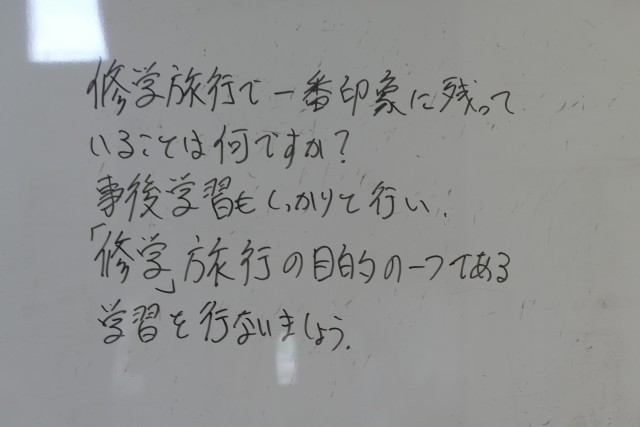 修学旅行で一番印象に残って
いることは何ですか?
事後学習もしっかりと行い、
「修学」旅行の目的の一つである
学習を行ないましょう。